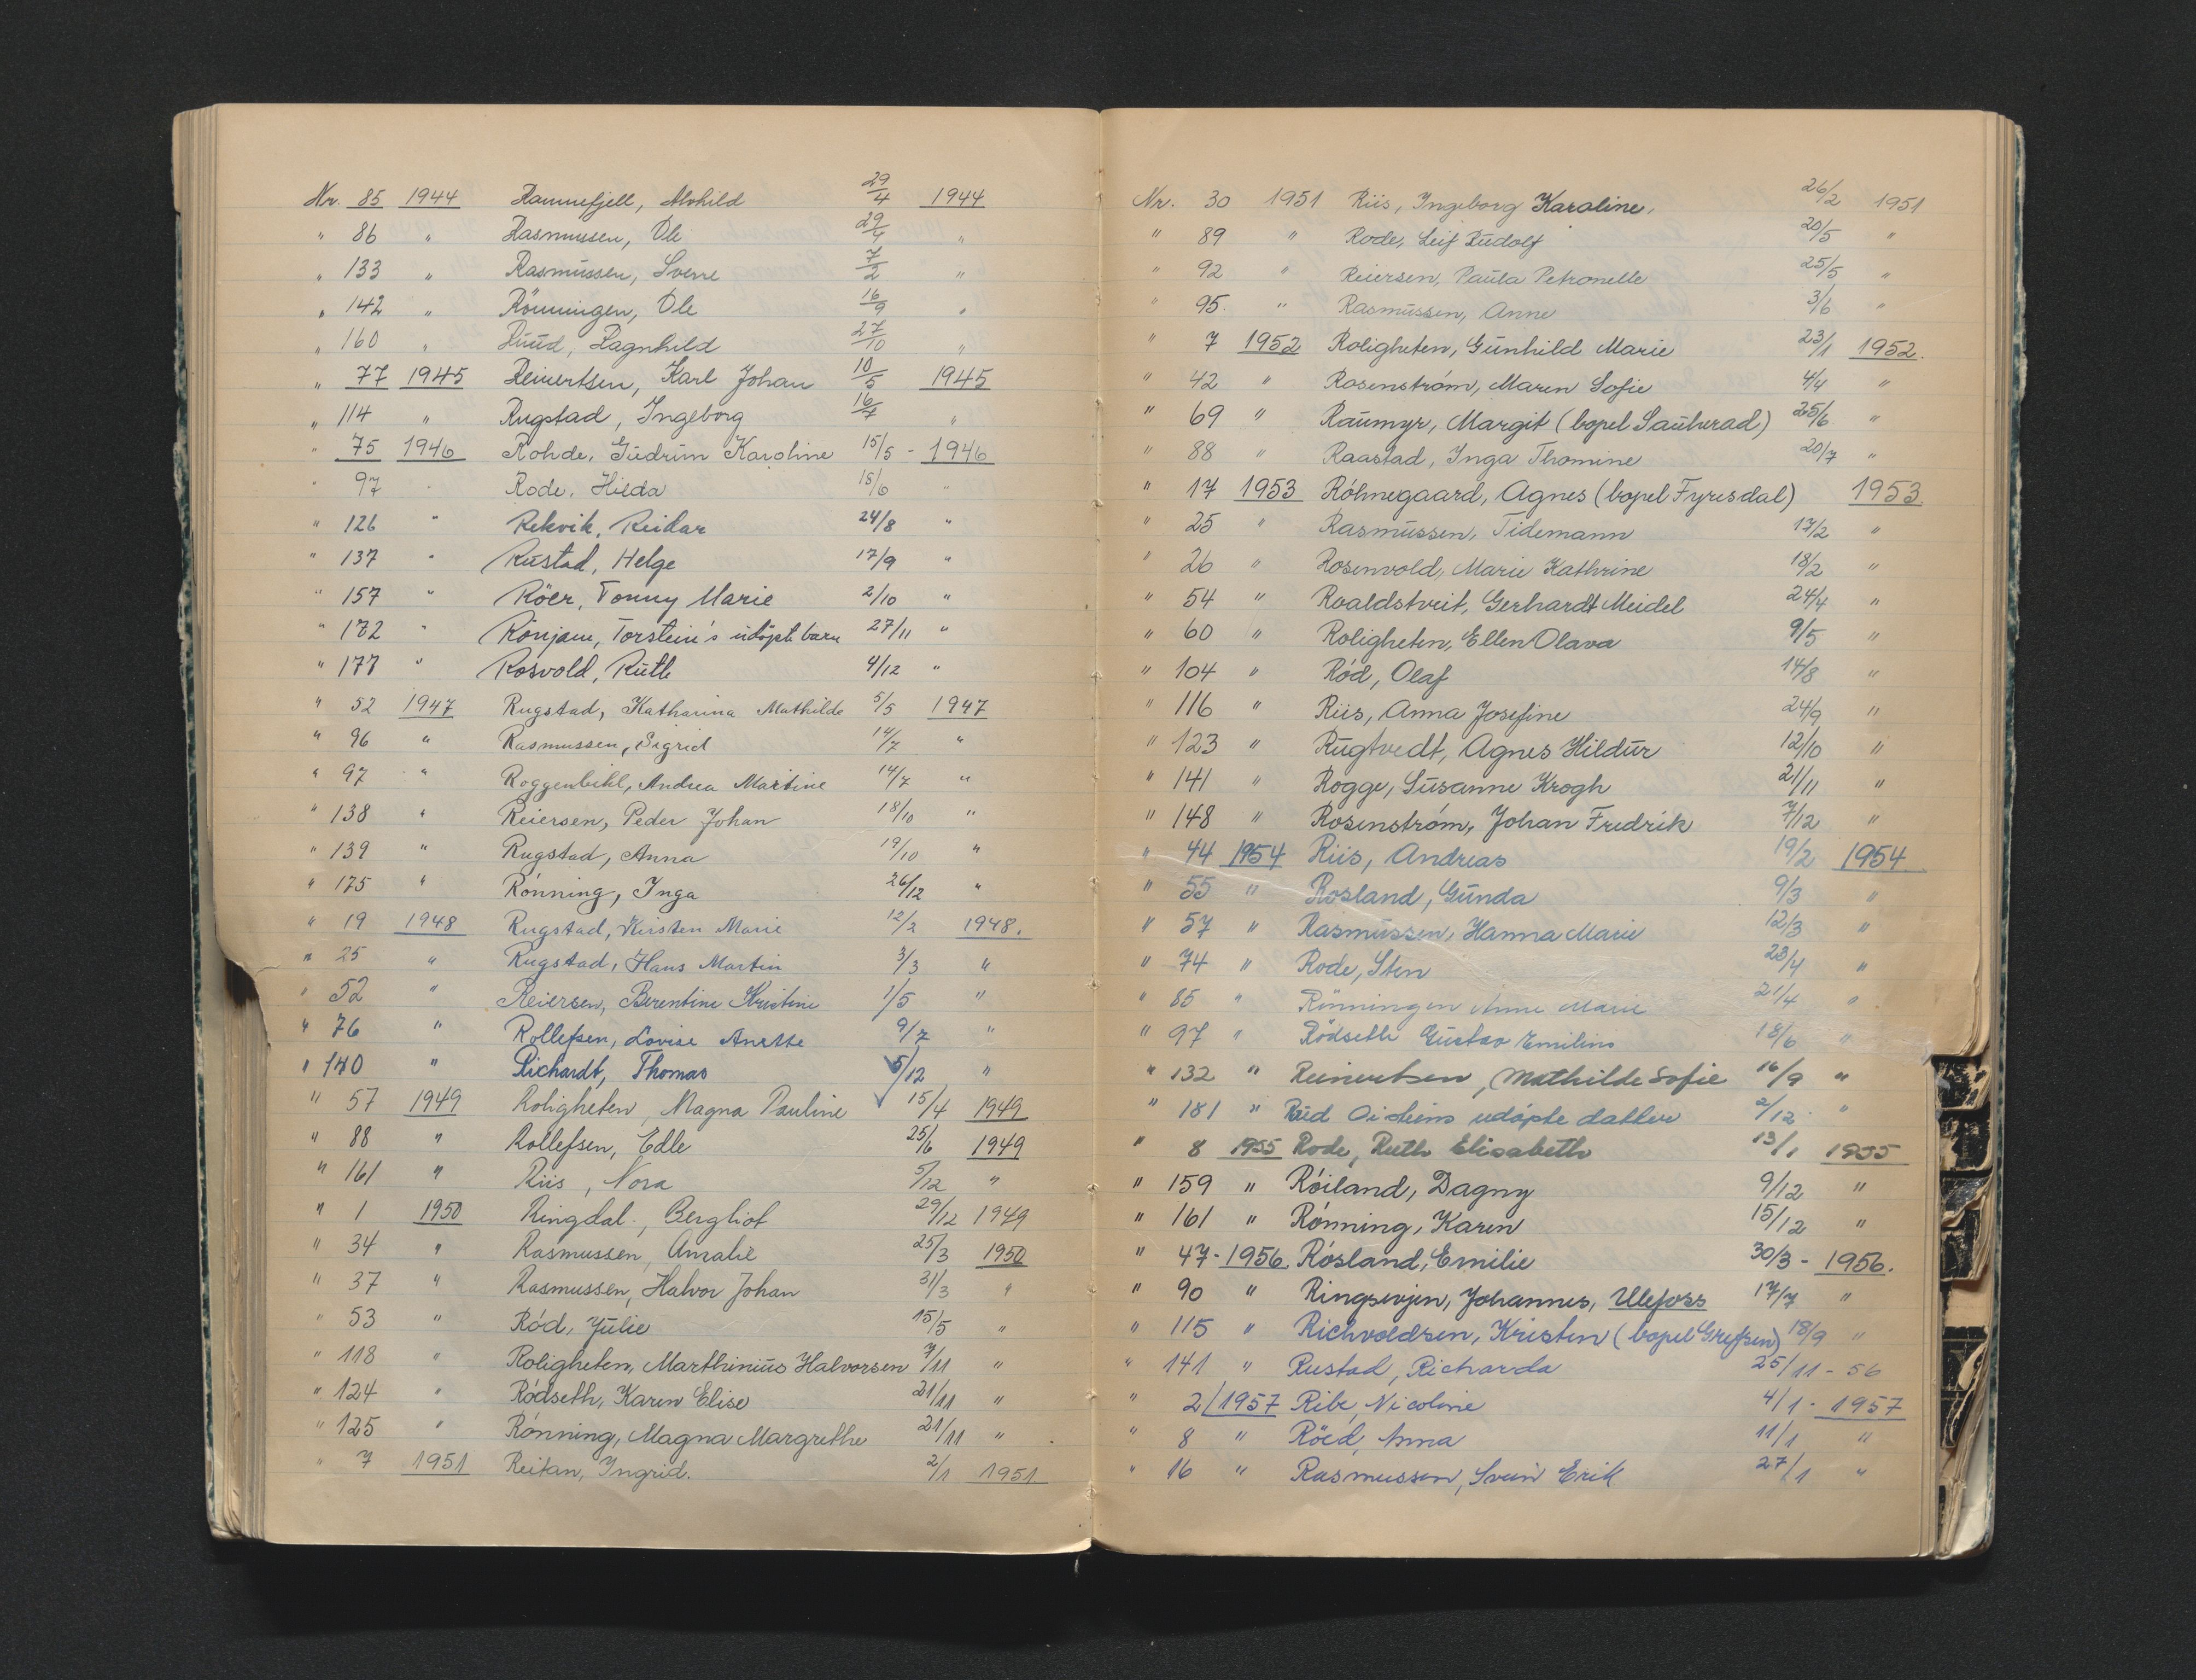 Nr. 85 1944 Ramnefjell, Alvhild 29/4 1944
" 86 " Rasmussen, Ole 29/4 "
" 133 " Rasmussen, Sverre 7/2 "
" 142 " Rönningen, Ole 16/9 "
" 160 " Ruud, Ragnhild 27/10 "
" 77 1945 Reinertsen, Karl Johan 10/5 1945
" 114 " Rugstad, Ingeborg 16/7 "
" 75 1946 Rohde, Gudrun Karoline 15/5 - 1946
" 97 " Rode, Hilda 18/6 "
" 126 " Rekvik, Reidar 24/8 "
" 137 " Rustad, Helge 17/9 "
" 157 " Röer, Tonny Marie 2/10 "
" 172 " Rönjom, Torstein's udöpt barn 27/11 "
" 177 " Rosvold, Ruth 4/12 "
" 52 1947 Rugstad, Katharina Mathilde 5/5 1947
" 96 " Rasmussen, Sigrid 14/7 "
" 97 " Roggenbihl, Andrea Martine 14/7 "
" 138 " Reiersen, Peder Johan 18/10 "
" 139 " Rugstad, Anna 19/10 "
" 175 " Rónning, Inga 26/12 "
" 19 1948 Rugstad, Kirsten Marie 12/2 1948.
" 25 " Rugstad, Hans Martin 3/3 "
" 52 " Reiersen, Berentine Kristine 1/5 "
" 76 " Rollefsen, Lovise Anette 9/7 "
" 140 " Richardt, Thomas 5/12 "
" 57 1949 Roligheten, Magna Pauline 15/4 1949
" 88 " Rollefsen, Edle 25/6 1949
" 161 " Riis, Nora 5/12 "
" 1 1950 Ringdal, Bergliot 29/12 1949
" 34 " Rasmussen, Amalie 25/3 1950
" 37 " Rasmussen, Halvor Johan 31/3 "
" 53 "Ród, Julie 15/5 "
" 118 " Roligheten, Marthinius Halvorsen 7/11 "
" 124 " Ródseth, Karen Elise 21/11 "
" 125 " Rónning, Magna Margrethe 21/11 "
" 7 1951 Reitan, Ingrid. 2/1 1951
Nr. 30 1951 Riis, Ingeborg Karoline, 26/2 1951
" 89 " Rode, Leif Rudolf 20/5 "
" 92 " Reiersen, Paula Petronelle 25/5 "
" 95. " Rasmussen, Anne 3/6 "
" 7 1952 Roligheten, Gunhild Marie 23/1 1952.
" 42 " Rosenstróm, Maren Sofie 4/4 "
" 69 " Raumyr, Margit (bopel Sauherad) 25/6 "
" 88 " Raastad, Inga Thomine 20/7 "
" 17 1953 Róhnegaard, Agnes (bopel Fyresdal) 1953
" 25 " Rasmussen, Tidemann 17/2 "
" 26 " Rosenvold, Marie Kathrine 18/2 "
" 54 " Roaldstveit, Gerhardt Meidel 24/4 "
" 60 " Roligheten, Ellen Olava 9/5 "
" 104 " Ród, Olaf 14/8 "
" 116 " Riis, Anna Josefine 24/9 "
" 123 " Rugtvedt, Agnes Hildur 12/10 "
" 141 " Rogge, Susanne Krogh 21/11 "
" 148 " Rosenstróm, Johan Fredrik 7/12 "
" 44 1954 Riis, Andreas 19/2 1954
" 55 " Rosland, Gunda 9/3 "
" 57 " Rasmussen, Hanna Marie 12/3 "
" 74 " Rode, Sten 23/4 "
" 85 " Rönningen Anne Marie 21/4 "
" 97 " Rödseth Gustav Emilius 18/6 "
" 132 " Reinertsen, Mathilde Sofie 16/9 "
" 181 " Rud Oisteins udópte datter 2/12 "
" 8 1955 Rode, Ruth Elisabeth 13/1 1955
" 159 " Róiland, Dagny 9/12 "
" 161 " Rónning, Karen 15/12 "
" 47 - 1956 Rósland, Emilie 30/3 - 1956.
" 90 " Ringsevjen, Johannes, Ulefoss 17/7 "
" 115 " Richvoldsen, Kristen (bopel Grefsen) 18/9 "
" 141 " Rustad, Richarda 25/11 - 56
" 2/ 1957 Ribe, Nicoline 4/1 - 1957
" 8 " Röed, Anna 11/1 "
" 16 " Rasmussen, Svein Erik 27/1 "